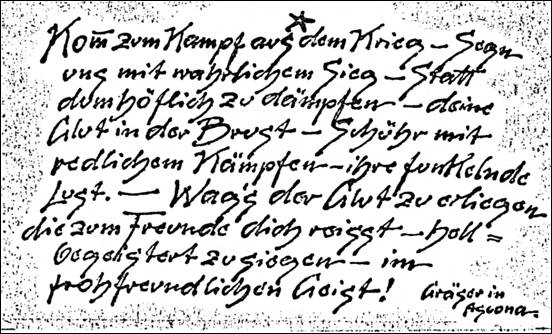 Kom̅ zum Kampf aus dem Krieg – Segn
uns mit wahrlichem Sieg – Statt
dumhöflich zu dämpfen – deine
Glut in der Brust – Schühr mit
redlichem Kämpfen – ihre funkelnde
Lust. — Wag's der Glut zu erliegen
die zum Freunde dich reisst – hell=
begeistert zu siegen – im
frohfreundlichen Geist! Gräser in
Ascona